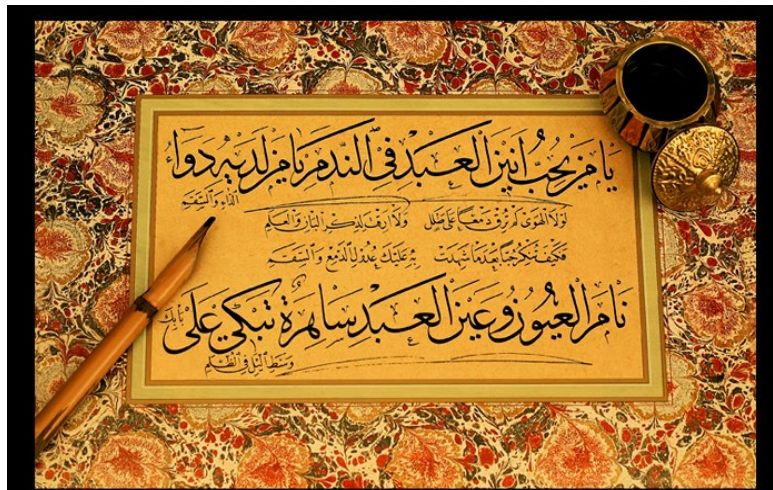 يَا مَنْ يُحِبُّ أَنِينَ الْعَبْدِ فِي النَّدَمِ يَا مَنْ لَدَيْهِ دَوَاءُ
الدَّاءِ وَالسَّقَمِ
لَوْلَا الْهَوَى لَمْ تُرِقْ دَمْعًا عَلَى طَلَلِ وَلَا أَرِقْتَ لِذِكْرِ الْبَانِ وَالْعَلَمِ
فَكَيْفَ تُنْكِرُ حُبًّا بَعْدَ مَا شَهِدَتْ بِهِ عَلَيْكَ عُدُولُ الدَّمْعِ وَالسَّقَمِ
نَامَ الْعُيُونُ وَعَيْنُ الْعَبْدِ سَاهِرَةٌ تَبْكِي عَلَى بَابِكَ
وَسَطَ اللَّيْلِ فِي الظُّلَمِ